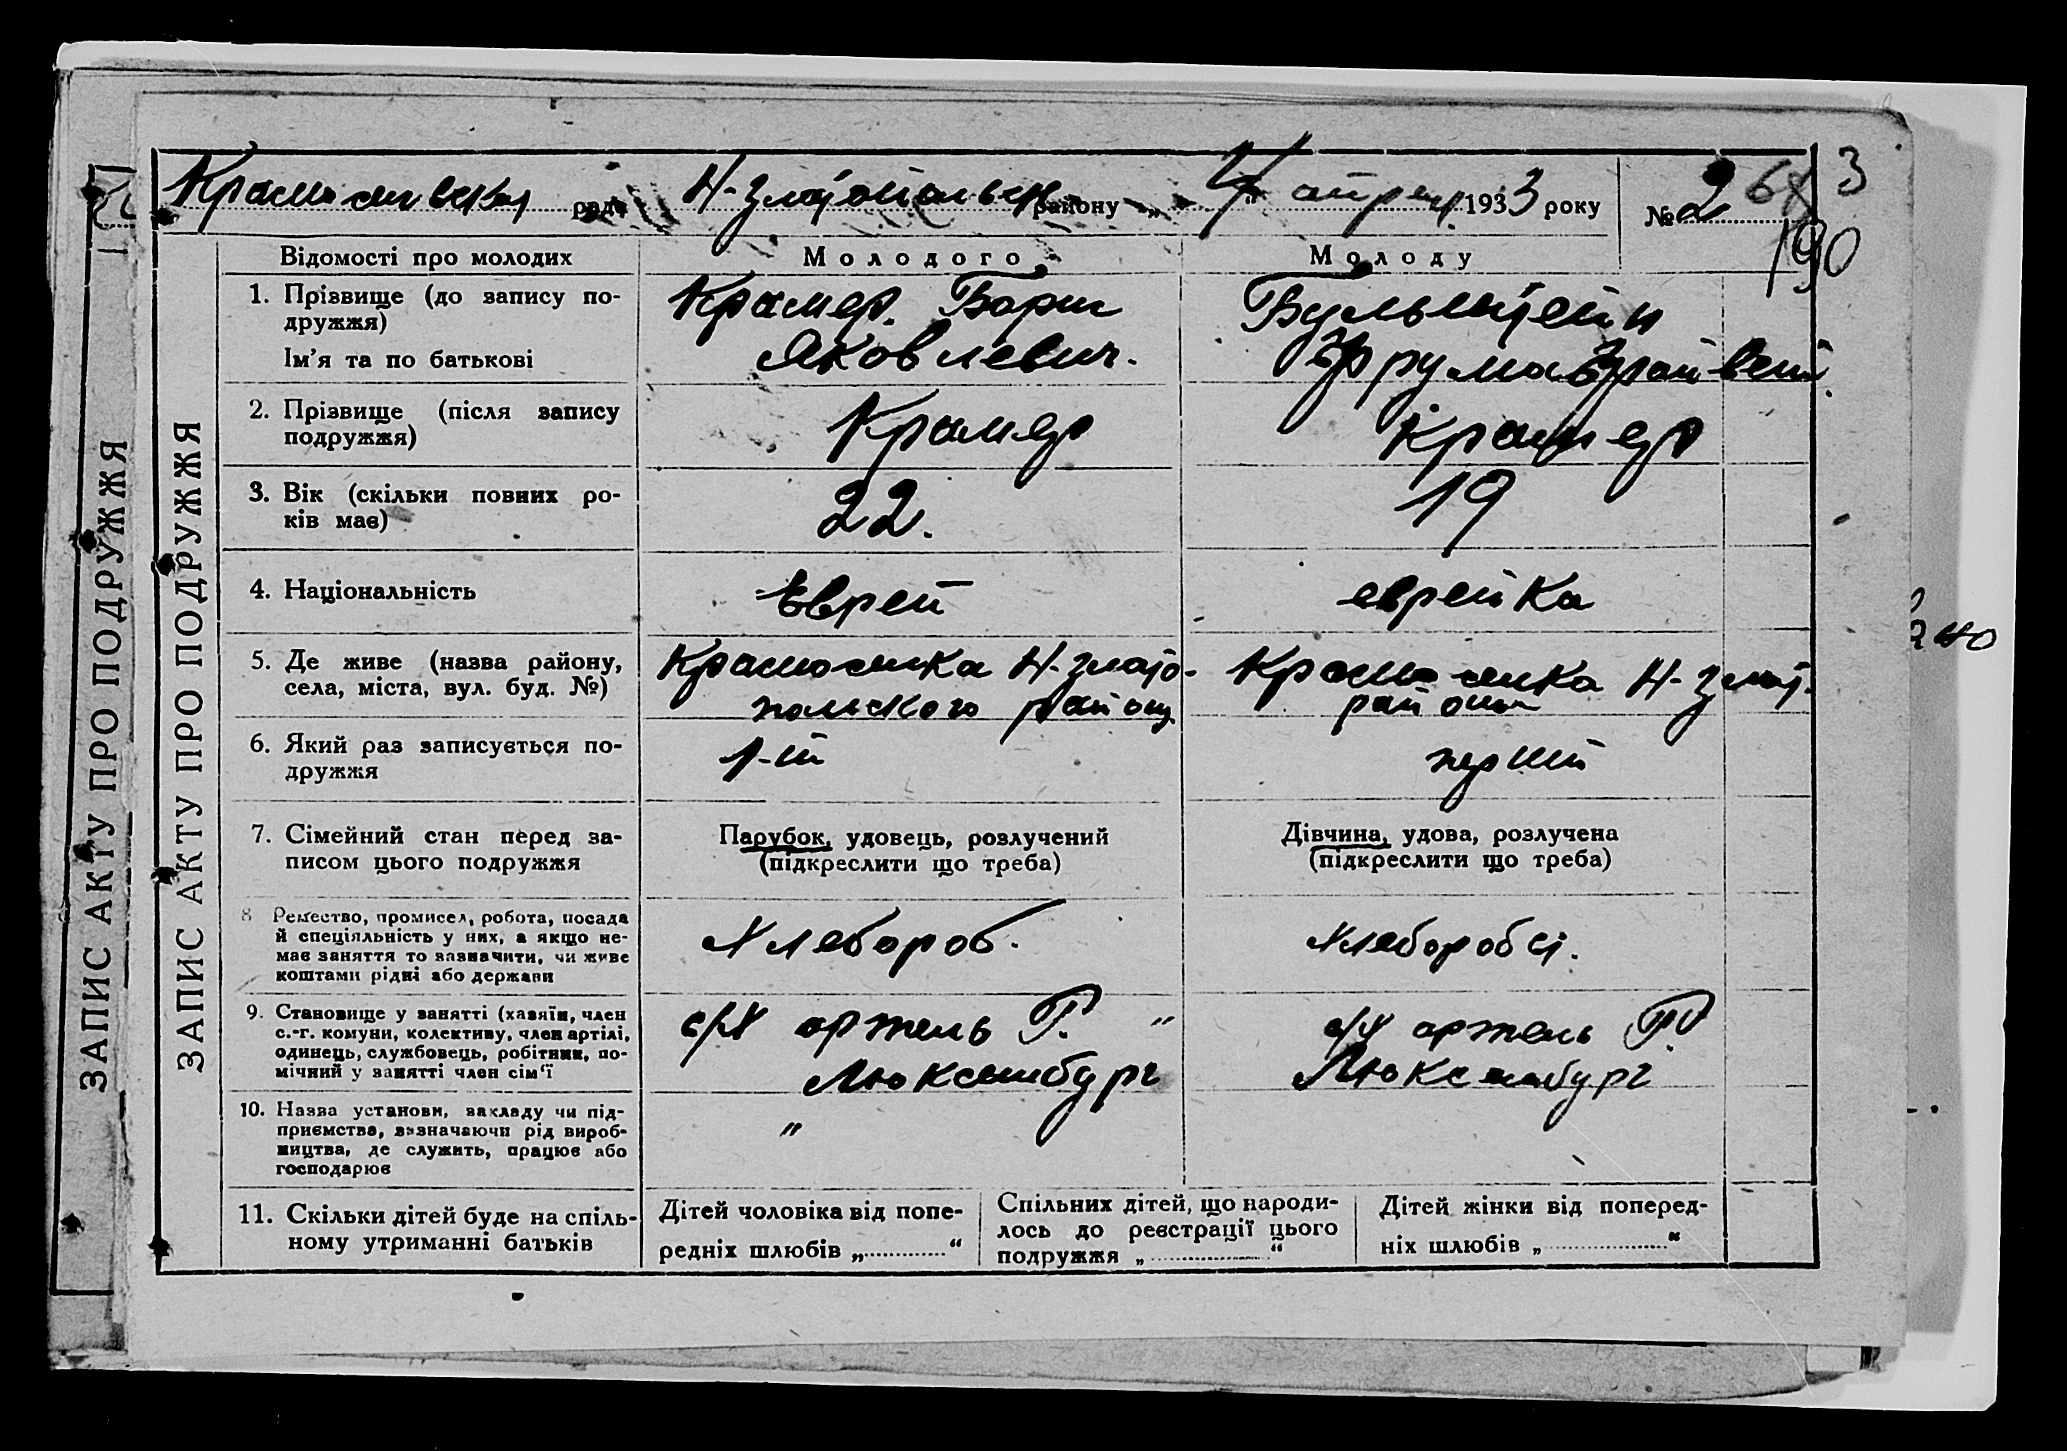 ЗАПИС АКТУ ПРО ПОДРУЖЖЯ
ЗАПИС АКТУ ПРО ПОДРУЖЖЯ
рада Н-златопольск району „ 4 “ апрел 1933 року № 2
3
190
Відомості про молодих Молодого Молоду
1. Прізвище (до запису по-
дружжя)
Ім’я та по батькові
Крамер Борис
Яковлевич.
Вульштейн
Фрума
2. Прізвище (після запису
подружжя)
Крамер
Крамер
3. Вік (скільки повних ро-
ків має)
22.
19
4. Національність
Еврей
еврейка
5. Де живе (назва району,
села, міста, вул. буд. №)
Н-злато-
польского район
Н-злат.
район
6. Який раз записується по-
дружжя
1-й
перший
7. Сімейний стан перед за-
писом цього подружжя
Парубок, удовець, розлучений
(підкреслити що треба)
Дівчина, удова, розлучена
(підкреслити що треба)
8 Ремество, промисел, робота, посада
й спеціяльність у них, а якщо не-
має заняття то зазначити, чи живе
коштами рідні або держави
Хлебороб.
хлебороб
9. Становище у занятті (хазяїн, член
с.-г. комуни, колективу, член артілі,
одинець, службовець, робітник, по-
мічний у занятті член сім‘ї
с/х артель Р. "
Люксембург
с/х артель Р.
Люксембург
10. Назва установи, закладу чи під-
приємства, зазначаючи рід вироб-
ництва, де служить, працює або
господарює
"
11. Скільки дітей буде на спіль-
ному утриманні батьків
Дітей чоловіка від попе-
редніх шлюбів „ “
Спільних дітей, що народи-
лось до реєстрації цього
подружжя „ “
Дітей жінки від поперед-
ніх шлюбів „ “